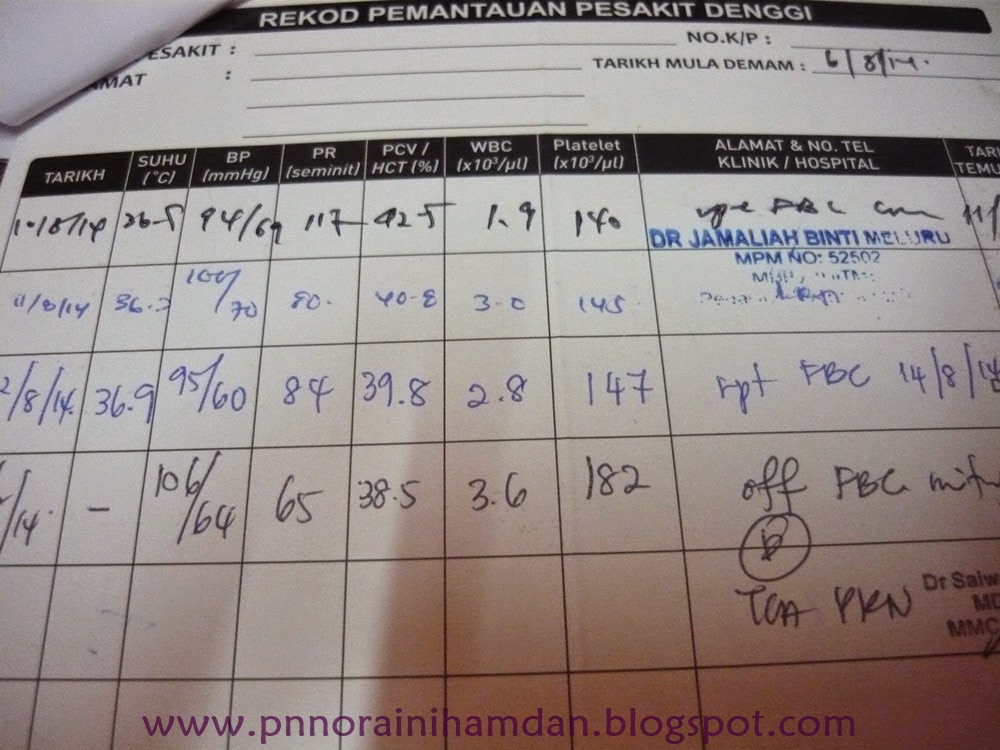 REKOD PEMANTAUAN PESAKIT DENGGI
ESAKIT : NO.K/P :
AMAT : TARIKH MULA DEMAM : 6/8/14.
TARIKH SUHU (°C) BP (mmHg) PR (seminit) PCV / HCT (%) WBC (x10³/µl) Platelet (x10³/µl) ALAMAT & NO. TEL KLINIK / HOSPITAL TARI TEMU
10/8/14 36.5 94/69 117 42.5 1.9 140 FBC 11/
DR JAMALIAH BINTI MELURU
MPM NO: 52502
11/8/14 36. 100/70 80. 40.8 3.0 145
2/8/14 36.9 95/60 84 39.8 2.8 147 rpt FBC 14/8/14
/14 - 106/64 65 38.5 3.6 182 off FBC
TCA PRN Dr Salw
MD
MMC
www.pnnorainihamdan.blogspot.com